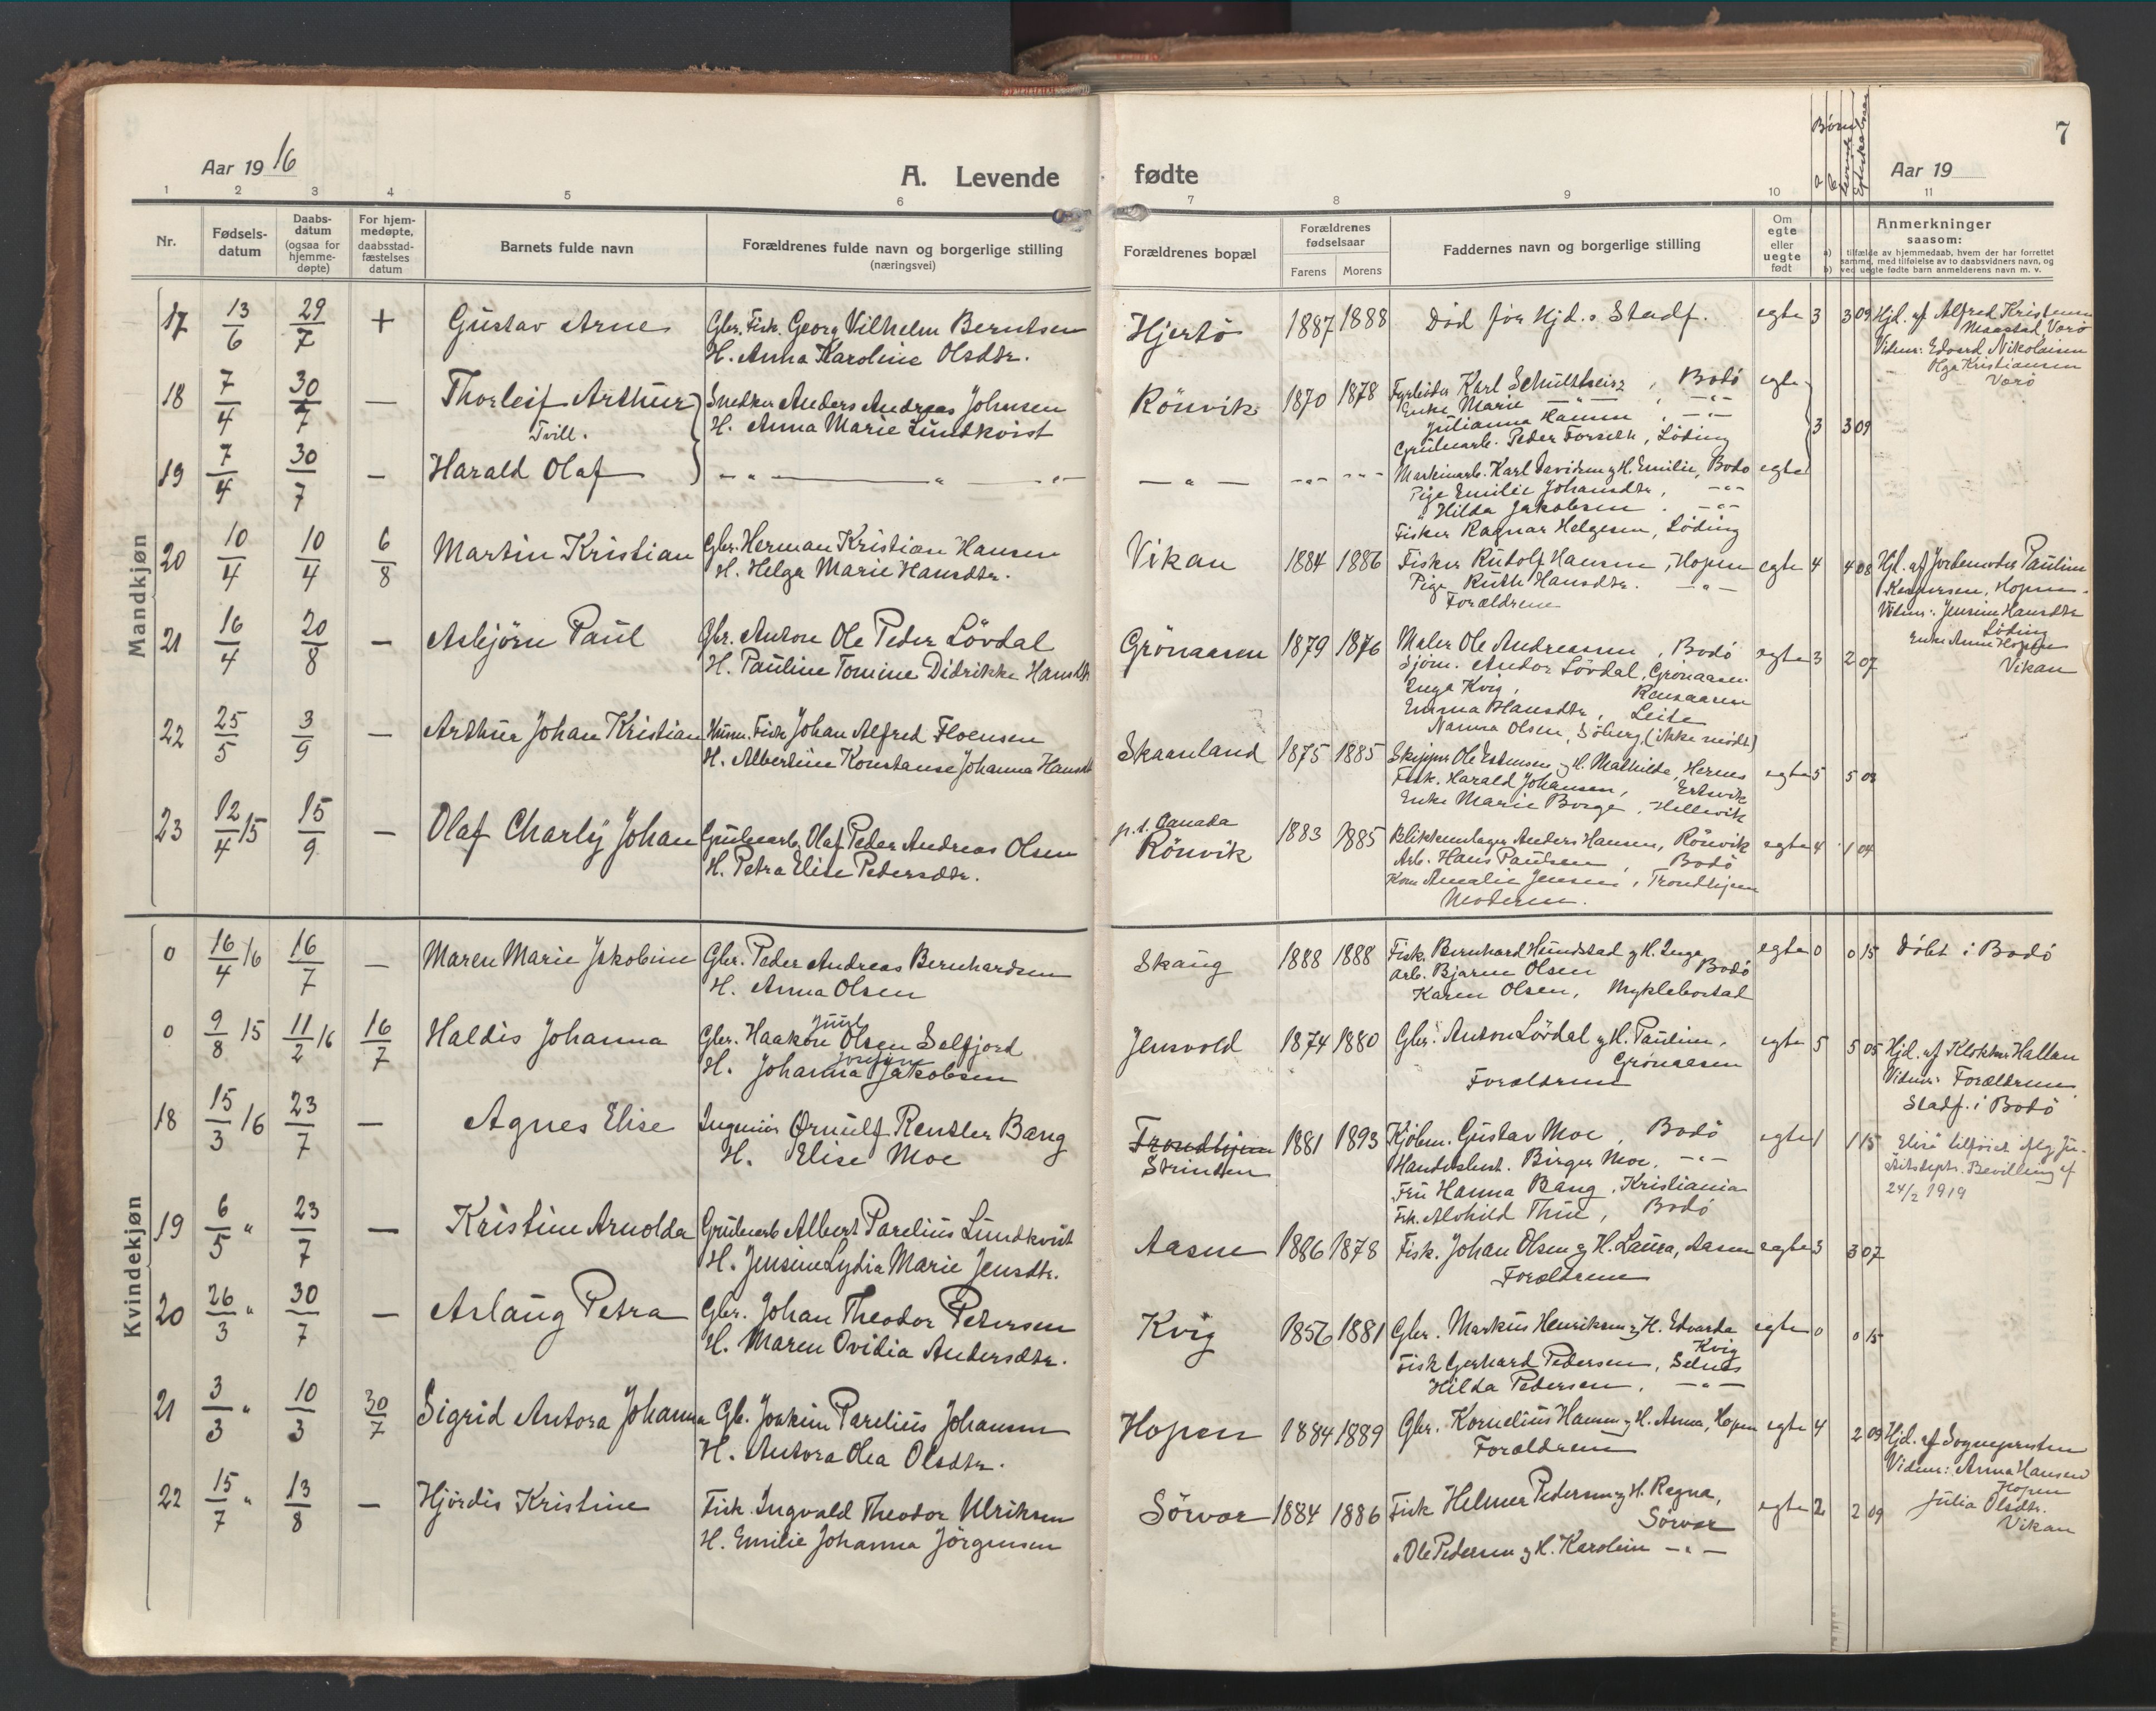 Aar 19 16
A. Levende
1 2 3 4 5 6
Nr.
Fødsels-
datum
Daabs-
datum
(ogsaa for
hjemme-
døpte)
For hjem-
medøpte,
daabsstad-
fæstelses
datum
Barnets fulde navn
Forældrenes fulde navn og borgerlige stilling
(næringsvei)
Mandkjøn
17 13/6 29/7 + Gustav Arne Gbr. Fisk. Georg Vilhelm Berntsen
H. Anna Karoline Olsdtr.
18 7/4 30/7 — Thorleif Arthur Snedker Anders Andreas Johnsen
Tvill. H. Anna Marie Lundkvist
19 7/4 30/7 — Harald Olaf — " — " — " —
20 10/4 10/4 6/8 Martin Kristian Gbr. Herman Kristian Hansen
H. Helga Marie Hansdtr.
21 16/4 20/8 — Asbjörn Paul Gbr. Anton Ole Peder Lövdal
H. Pauline Tomine Didrikke Hansdtr
22 25/5 3/9 — Arthur Johan Kristian Husm. Fisk Johan Alfred Floensen
H. Albertine Konstanse Johanna Hansdt
23 12/4 15 15/9 — Olaf Charly Johan Grubearb. Olaf Peder Andreas Olsen
H. Petra Elise Pedersdtr.
Kvindekjøn
0 16/4 16 16/7 — Maren Marie Jakobine Gbr. Peder Andreas Bernhardsen
H. Anna Olsen
0 9/8 15 11/2 16 16/7 Haldis Johanna Gbr. Haakon Juul Olsen Selfjord
H. Johanna Josefine Jakobsen
18 15/3 16 23/7 — Agnes Elise Ingeniör Ørnulf Rentler Bang
H. Elise Moe
19 6/5 " 23/7 — Kristine Arnolda Grubearb Albert Parelius Lundkvist
H. Jensine Lydia Marie Jensdtr.
20 26/3 " 30/7 — Aslaug Petra Gbr. Johan Theodor Petersen
H. Maren Ovidia Andersdtr.
21 3/3 " 10/3 30/7 Sigrid Antora Johanna Gb. Joakim Parelius Johansen
H. Antora Olea Olsdtr.
22 15/7 " 13/8 — Hjördis Kristine Fisk. Ingvald Theodor Ulriksen
H. Emilie Johanna Jörgensen
7
fødte
Aar 19
7 8 9 10 11
Forældrenes bopæl
Forældrenes
fødselsaar
Farens Morens
Faddernes navn og borgerlige stilling
Om
egte
eller
uegte
født
Børn
Anmerkninger
saasom:
a) tilfælde av hjemmedaab, hvem der har forrettet
samme, med tilføielse av to daabsvidners navn, og
b) ved uegte fødte barn anmelderens navn m. v.
Hjertö 1887 1888 Död för Hjd.s Stadf. egte 3 3 09 Hjd. af Alfred Kristensen
Maastad, Værö
Vidner: Edvard Nikolaisen
Olga Kristiansen
Værö
Rönvik 1870 1878 Fyrböder Karl Schultheisz, Bodö egte
Enke Marie — " — , — " —
Julianna Hansen, — " — 3 3 09
Grubearb. Peder Forseth, Löding
— " — — " — — " — Maskinarb. Karl Davidsen og H. Emilie, Bodö egte
Pige Emilie Johansdtr, — " —
" Hilda Jakobsen. — " —
Fisker Ragnar Helgesen, Löding
Vikan 1884 1886 Fisker Rudolf Hansen, Hopen egte 4 4 08 Hjd. af Jordemoder Pauline
Pige Ruth Hansdtr. — " — Kaspersen, Hopen.
Forældrene Vidner: Jensine Hansdtr
Löding
Enke Anne Hopen
Vikan
Grönaasen 1879 1876 Maler Ole Andreassen, Bodö egte 3 2 07
Sjöm. Andor Lövdal, Grönaasen
Inga Kvig,
Emma Hansdtr, Leite
Nanna Olsen, Söberg (ikke mödt)
Skaanland 1875 1885 Skipper Ole Estensen og H. Mathilde, Hernes egte 5 5 08
Fisk. Harald Johansen,
Enke Marie Borge,
p.t. Canada
Rönvik 1883 1885 Blikkenslager Anders Hansen, Rönvik egte 4 1 04
Arb. Hans Paulsen, Bodö
Kone Amalie Jensen, Trondhjem
Moderen.
Skaug 1888 1888 Fisk. Bernhard Hundstad og H. Inga egte 0 0 15 Döbt i Bodö
Arb. Bjarne Olsen Bodö
Karen Olsen, Myklebostad
Jensvold 1874 1880 Gbr. Anton Lövdal og H. Pauline, egte 5 5 05 Hjd. af Klokker Hallan
Grönaasen Vidner: Forældrene
Forældrene Stadf. i Bodö
Trondhjem
Strinden 1881 1893 Kjöbm. Gustav Moe, Bodö egte 1 1 15
Handelsbest. Birger Moe, — " —
Fru Hanna Bang, Kristiania 24/2 1919
Frk. Alvhild Thue, Bodö
Aasen 1886 1878 Fisk. Johan Olsen og H. Laura, Aasen egte 3 3 07
Forældrene
Kvig 1856 1881 Gbr. Markus Henriksen og H. Edvarda egte 0 0 15
Kvig
Fisk Gerhard Pedersen, Selnes
Hilda Pedersen, — " —
Hopen 1884 1889 Gbr. Kornelius Hansen og H. Anna, Hopen egte 4 2 09 Hjd. af Sognepresten
Forældrene Vidner: Anna Hansen
Hopen
Julia Olsdtr.
Vikan
Sörvær 1884 1886 Fisk Helmer Pedersen og H. Ragna, egte 2 2 09
Sörvær
" Ole Pedersen og H. Karoline — " —